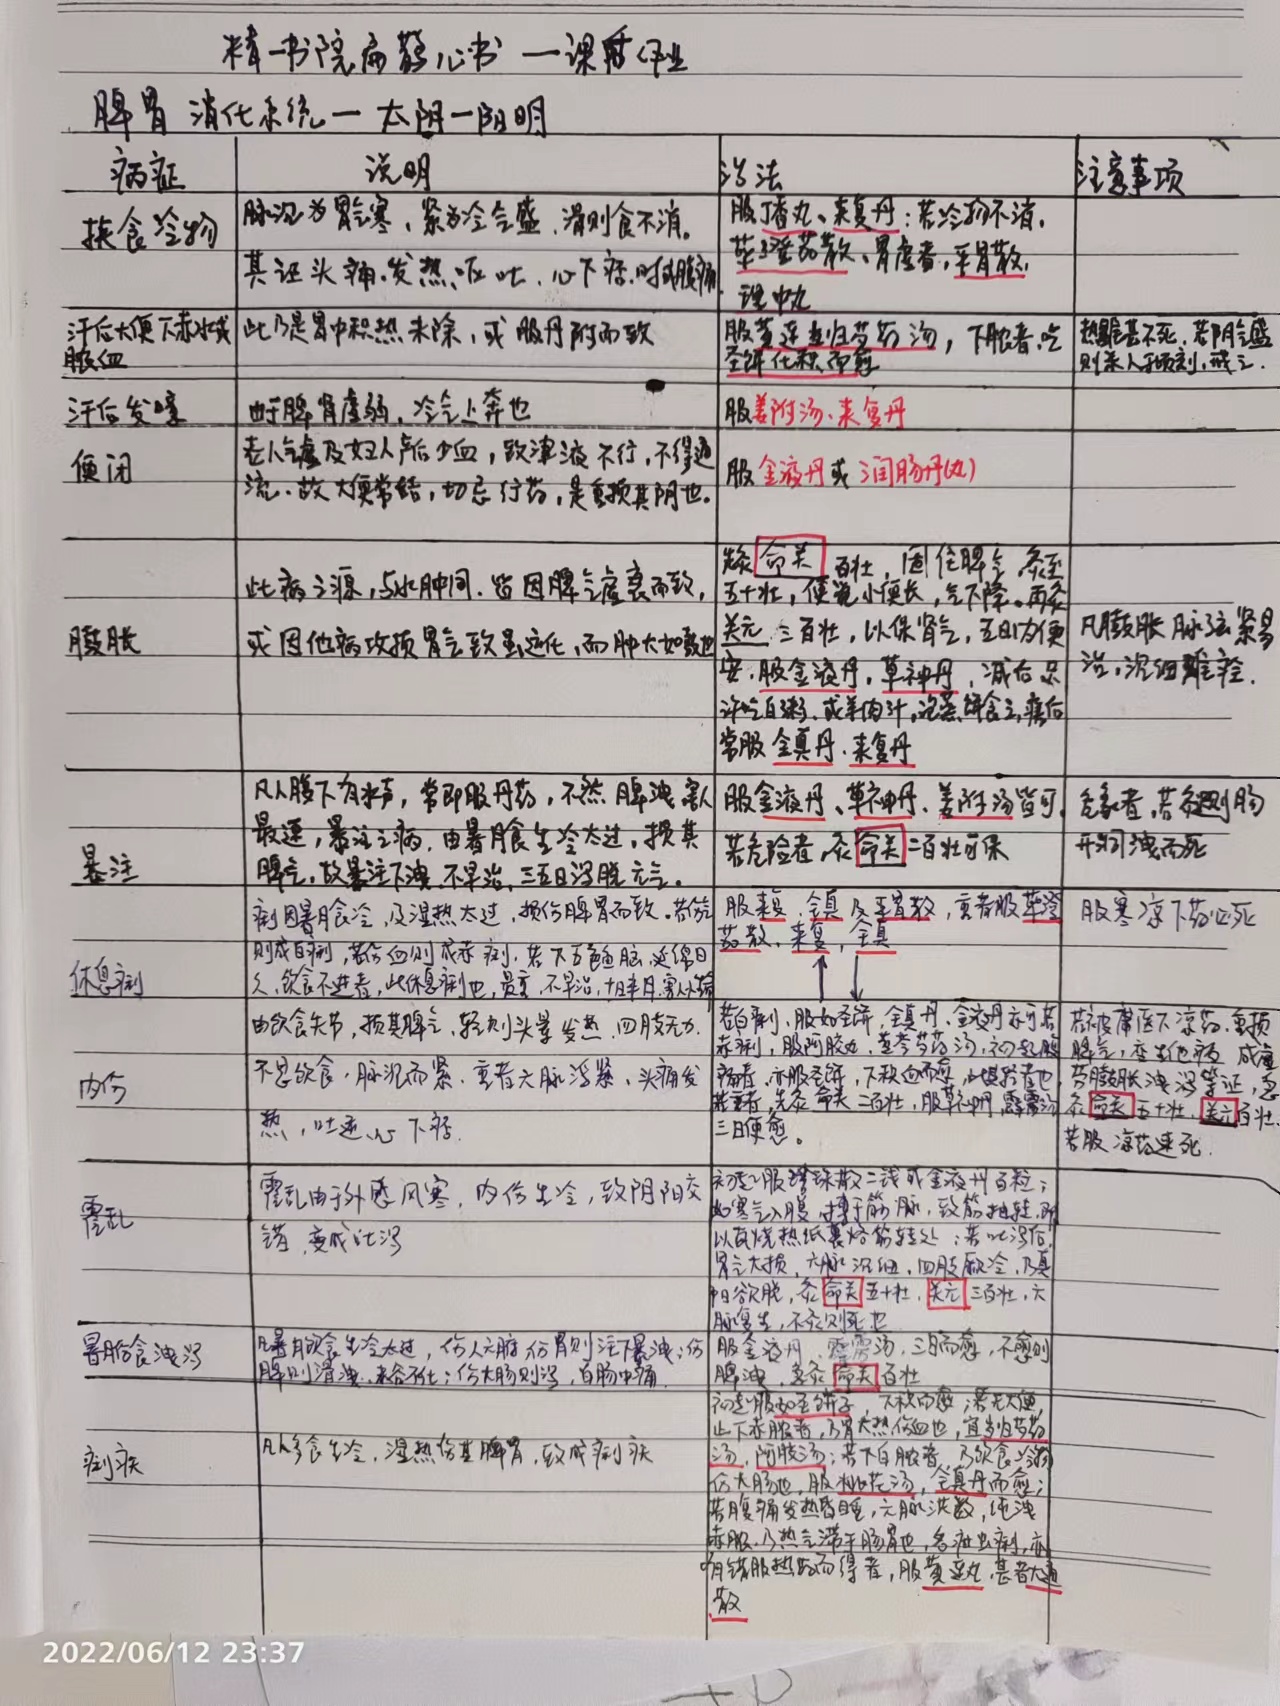 精一书院扁鹊心书 一 课后作业
脾胃 消化系统一 太阴一阳明
病症 说明 治法 注意事项
挟食冷物
脉沉为胃气寒,紧为冷气盛,滑则食不消。
其证头痛、发热、呕吐、心下痞,时或腹痛
服丁香丸、来复丹;若冷物不消,
草豆蔻散、胃虚者,平胃散,
理中丸
汗后大便下赤水或
脓血
此乃是胃中积热未除,或服丹附而致
服黄连当归芍药汤,下脓者,吃
圣饼化积而愈
热盛甚不死,若阴气盛
则杀人于顷刻,戒之.
汗后发噫
由于脾肾虚弱,冷气上奔也
服姜附汤、来复丹
便闭
老人气虚及妇人产后少血,致津液不行,不得通
流,故大便常结,切忌行药,是重损其阴也。
服金液丹或润肠丹(丸)
膨胀
此病之源,与水肿同,皆因脾气虚衰而致,
或因他病攻损胃气致虽运化,而肿大如鼓也
先灸命关百壮,固住脾气,灸至
五十壮,便觉小便长,气下降。再灸
关元三百壮,以保肾气,五日内便
安.服金液丹,草神丹,减后只
许吃白粥,或羊肉汁,泡蒸饼食之,瘥后
常服全真丹、来复丹
凡膨胀脉弦紧易
治,沉细难痊.
暴注
凡人腹下有水声,常即服丹药,不然脾泄害人
最速,暴注之病,由暑月食生冷太过,损其
脾气,故暴注下泄,不早治,三五日泻脱元气。
服金液丹、草神丹、姜附汤皆可.
若危险者,灸命关二百壮可保
危象者,若灸迟则肠
开洞泄而死
休息痢
痢因暑月食冷,及湿热太过,损伤脾胃而致。若伤气
则成白痢,若伤血则成赤痢.若下五色鱼脑,延绵日
久,饮食不进者,此休息痢也,最重,不早治,十日半月,害人性命
服来复、全真及平胃散,重者服草澄
茄散,来复,全真
服寒凉下药必死
内伤
由饮食失节,损其脾气,轻则头晕发热,四肢无力,
不思饮食,脉沉而紧,重者六脉浮紧,头痛发
热,吐逆,心下痞.
若白痢,服如圣饼,全真丹、金液丹亦可若
赤痢,服阿胶丸,黄芩芍药汤,初起腹
痛者,亦服圣饼,下积血而愈,此其轻者也,
若重者,先灸命关二百壮,服草神丹,霹雳汤
三日便愈。
若被庸医下凉药,重损
脾气,变生他病,成虚
劳膨胀泄泻等证,急
灸命关五十壮,关元百壮.
若服凉药速死.
霍乱
霍乱由于外感风寒,内伤生冷,致阴阳交
错,变成吐泻
初起服珍珠散二钱或金液丹百粒;
如寒气入腹,搏于筋脉,致筋抽转,即
以瓦烧热纸裹烙筋转处;若吐泻后,
胃气大损,六脉沉细,四肢厥冷,乃真
阳欲脱,灸命关五十壮,关元三百壮,六
脉复生,不灸则死也
暑月伤食泄泻
凡暑月饮食生冷太过,伤人六腑伤胃则注下暴泄;伤
脾则滑泄,米谷不化;伤大肠则泻,白肠中痛
服金液丹,霹雳汤,三日而愈,不愈则
脾泄,急灸命关百壮
痢疾
凡人多食生冷,湿热伤其脾胃,致成痢疾
初起服如圣饼子,下积而愈;若无大便,
止下赤脓者,乃胃大热伤血也,宜当归芍药
汤,阿胶汤;若下白脓者,乃饮食冷物
伤大肠也,服桃花汤,全真丹而愈;
若腹痛发热昏睡,六脉洪数,纯泄
赤脓,乃热气滞于肠胃也,名疳虫痢,亦
有错服热药而得者,服黄连丸,甚者大通
散
2022/06/12 23:37